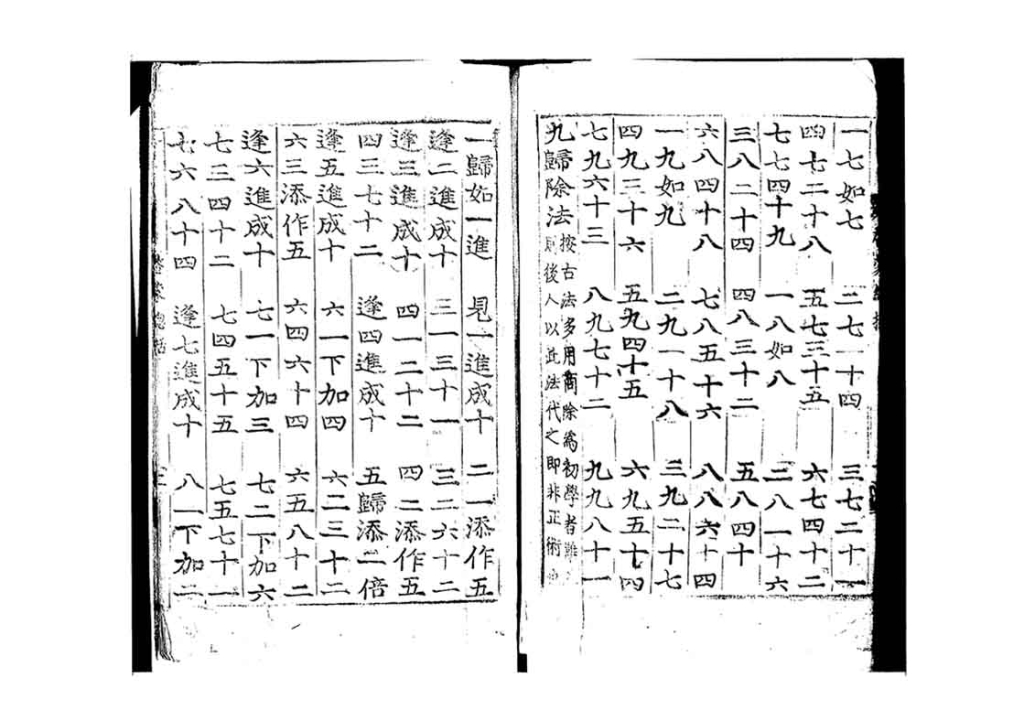 一七如七 二七一十四 三七二十一
四七二十八 五七三十五 六七四十二
七七四十九 一八如八 二八一十六
三八二十四 四八三十二 五八四十
六八四十八 七八五十六 八八六十四
一九如九 二九一十八 三九二十七
四九三十六 五九四十五 六九五十四
七九六十三 八九七十二 九九八十一
九歸除法 按古法多用商除為初學者難
則後人以此法代之即非正術也
一歸如一進 見一進成十 二一添作五
逢二進成十 三一三十一 三二六十二
逢三進成十 四一二十二 四二添作五
四三七十二 逢四進成十 五歸添二倍
逢五進成十 六一下加四 六二三十二
六三添作五 六四六十四 六五八十二
逢六進成十 七一下加三 七二下加六
七三四十二 七四五十五 七五七十一
七六八十四 逢七進成十 八一下加二